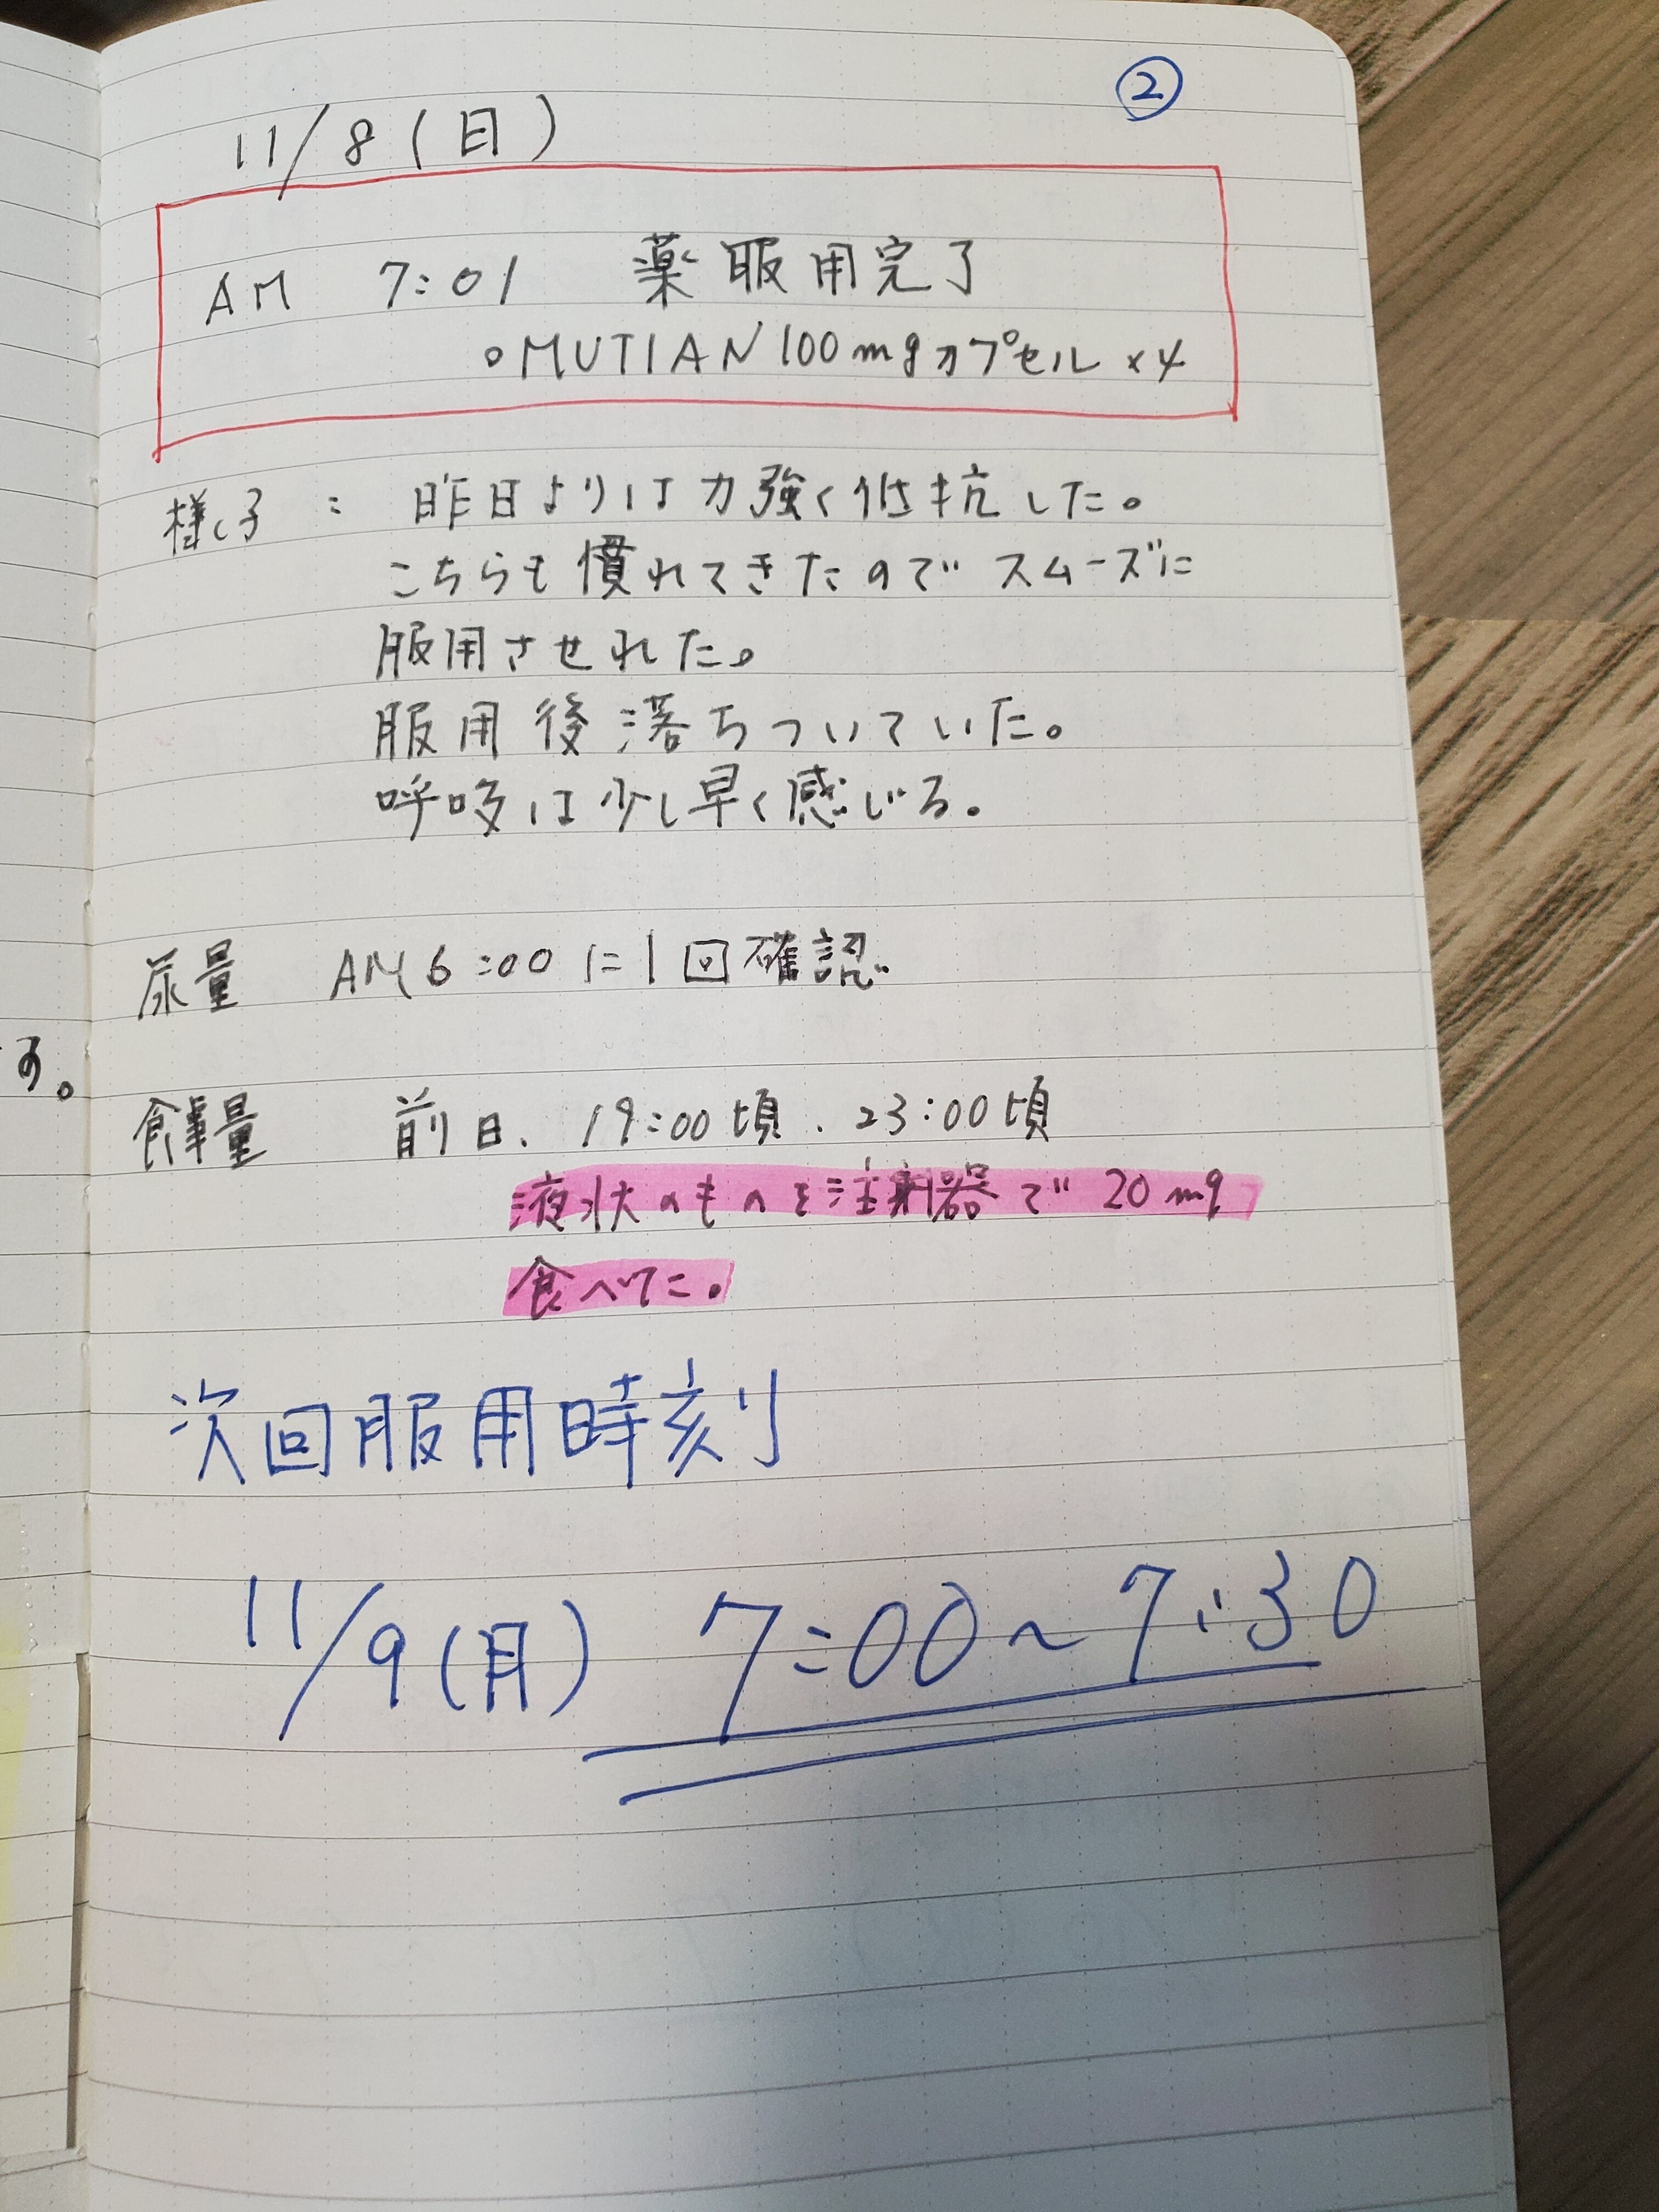 ②
11/8(日)
AM 7:01 薬服用完了
。MUTIAN 100mgカプセル×4
様子: 昨日よりは力強く低抗した。
こちらも慣れてきたのでスムーズに
服用させれた。
服用後落ちついていた。
呼吸は少し早く感じる。
尿量 AM6:00に1回確認
す。
食事量 前日、19:00頃、23:00頃
液状のものを注射器で20mg
食べてた。
次回服用時刻
11/9(月) 7:00~7:30